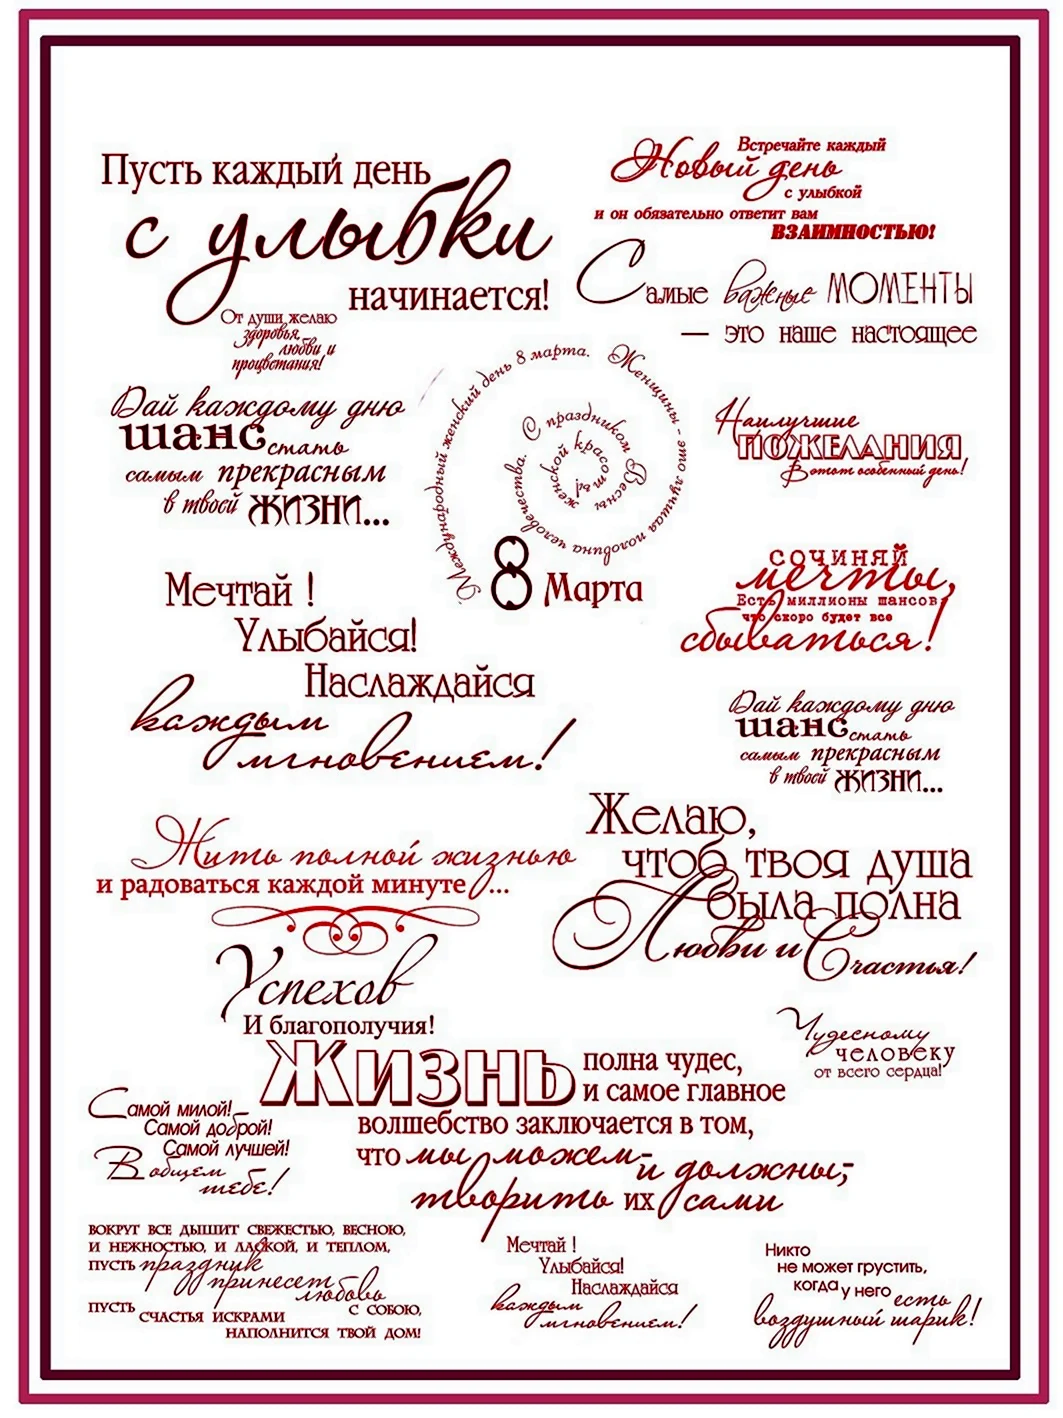 Пусть каждый день
с улыбки
начинается!
Встречайте каждый
Новый день
с улыбкой
и он обязательно ответит вам
ВЗАИМНОСТЬЮ!
Самые важные МОМЕНТЫ
— это наше настоящее
От души желаю
здоровья,
любви и
процветания!
Дай каждому дню
шанс стать
самым прекрасным
в твоей ЖИЗНИ...
Международный женский день 8 марта. Женщины - это лучшая половина человечества. С праздником Весны женской красоты
8 Марта
Наилучшие
ПОЖЕЛАНИЯ
В этот особенный день!
Мечтай !
Улыбайся!
Наслаждайся
каждым
мгновением!
сочиняй
мечты,
Есть миллионы шансов,
что скоро будет все
сбываться!
Дай каждому дню
шанс стать
самым прекрасным
в твоей ЖИЗНИ...
Жить полной жизнью
и радоваться каждой минуте...
Желаю,
чтоб твоя душа
была полна
Любви и Счастья!
Успехов
И благополучия!
Чудесному
человеку
от всего сердца!
Жизнь полна чудес,
и самое главное
волшебство заключается в том,
что мы можем - и должны, -
творить их сами
Самой милой!
Самой доброй!
Самой лучшей!
В общем
тебе!
ВОКРУГ ВСЕ ДЫШИТ СВЕЖЕСТЬЮ, ВЕСНОЮ,
И НЕЖНОСТЬЮ, И ЛАСКОЙ, И ТЕПЛОМ,
ПУСТЬ праздник
принесет
любовь
С СОБОЮ,
ПУСТЬ СЧАСТЬЯ ИСКРАМИ
НАПОЛНИТСЯ ТВОЙ ДОМ!
Мечтай !
Улыбайся!
Наслаждайся
каждым
мгновением!
Никто
не может грустить,
когда у него есть
воздушный шарик!